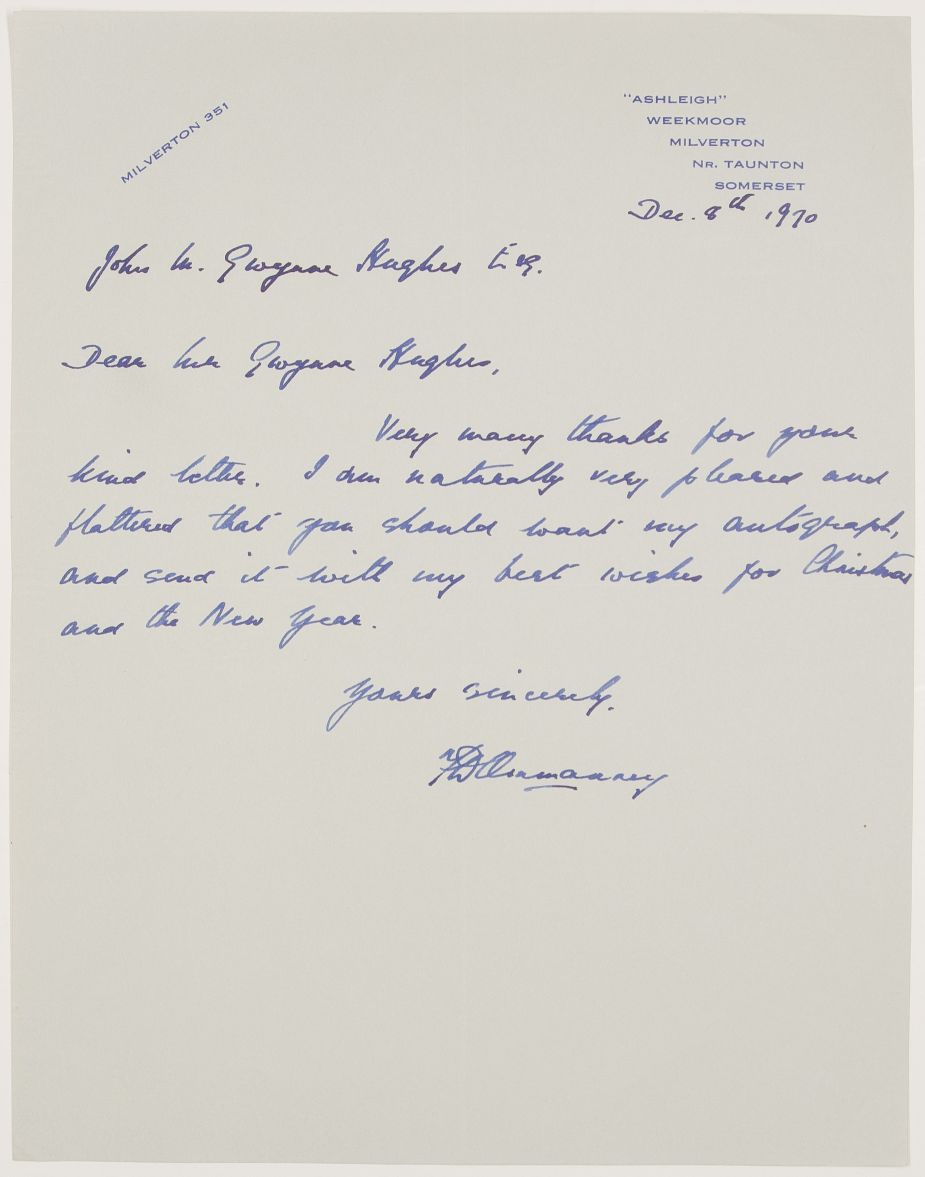 MILVERTON 351
"ASHLEIGH"
WEEKMOOR
MILVERTON
NR. TAUNTON
SOMERSET
Dec. 8th 1970
John M. Gwynne Hughes Esq.
Dear Mr Gwynne Hughes,
Very many thanks for your
kind letter. I am naturally very pleased and
flattered that you should want my autograph,
and send it with my best wishes for Christmas
and the New Year.
Yours sincerely.
FDOmmanney